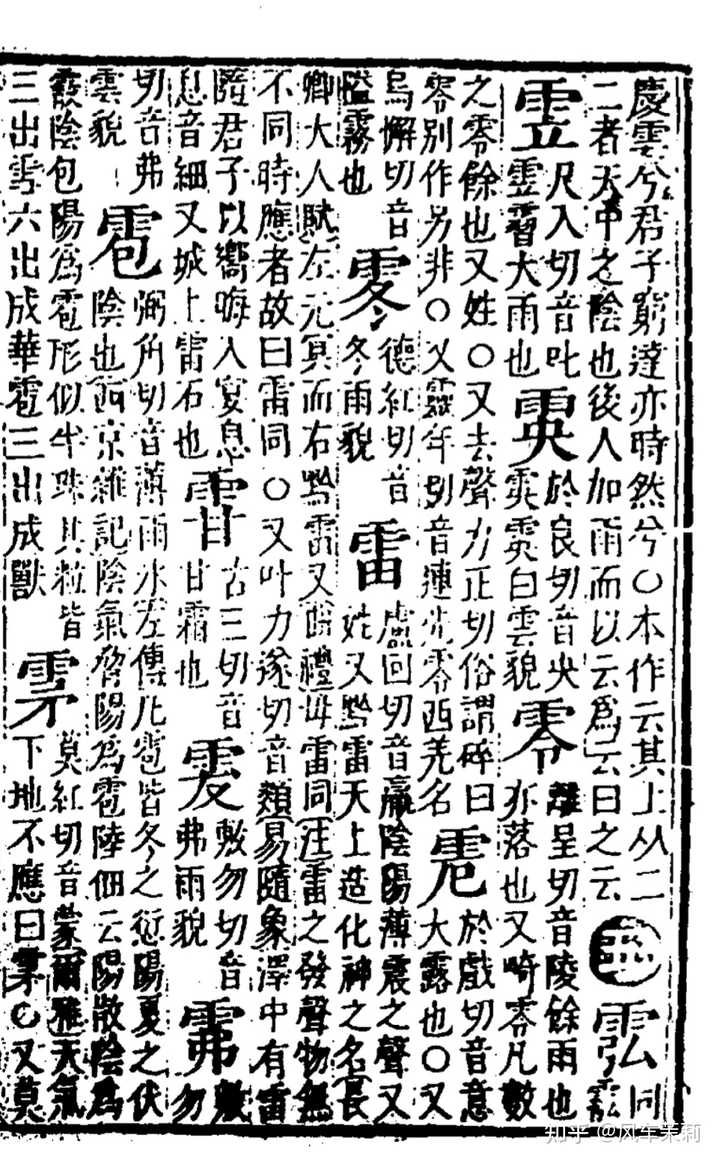 慶雲兮君子窮達亦時然兮○本作云其上从二
二者天中之陰也後人加雨而以云爲云曰之云
霐 同
雴 尺入切音叱
雴霫大雨也
霙 於良切音央
霙霙白雲貌
零 離呈切音陵餘雨也
亦落也又畸零凡數
之零餘也又姓○又去聲力正切俗謂碎曰
零別作另非○又靈年切音連先零西羌名
於戲切音意
大露也○又
烏懈切音
隘霧也
德紅切音
冬雨貌
雷 盧回切音羸陰陽薄震之聲又
姓又黔雷天上造化神之名長
卿大人賦左元冥而右黔雷又曲禮毋雷同注雷之發聲物無
不同時應者故曰雷同○又叶力遂切音類易隨象澤中有雷
隨君子以嚮晦入宴息
息音細又城上雷石也
古三切音
甘霜也
敷勿切音
弗雨貌
敷
勿
切音弗
雲貌
雹 弼角切音薄雨冰左傳凡雹皆冬之愆陽夏之伏
陰也西京雜記陰氣脅陽爲雹陸佃云陽散陰爲
霰陰包陽爲雹形似牛珠其粒皆
三出雪六出成華雹三出成獸
雺 莫紅切音蒙爾雅天氣
下地不應曰雺○又莫
知乎 @风车茉莉